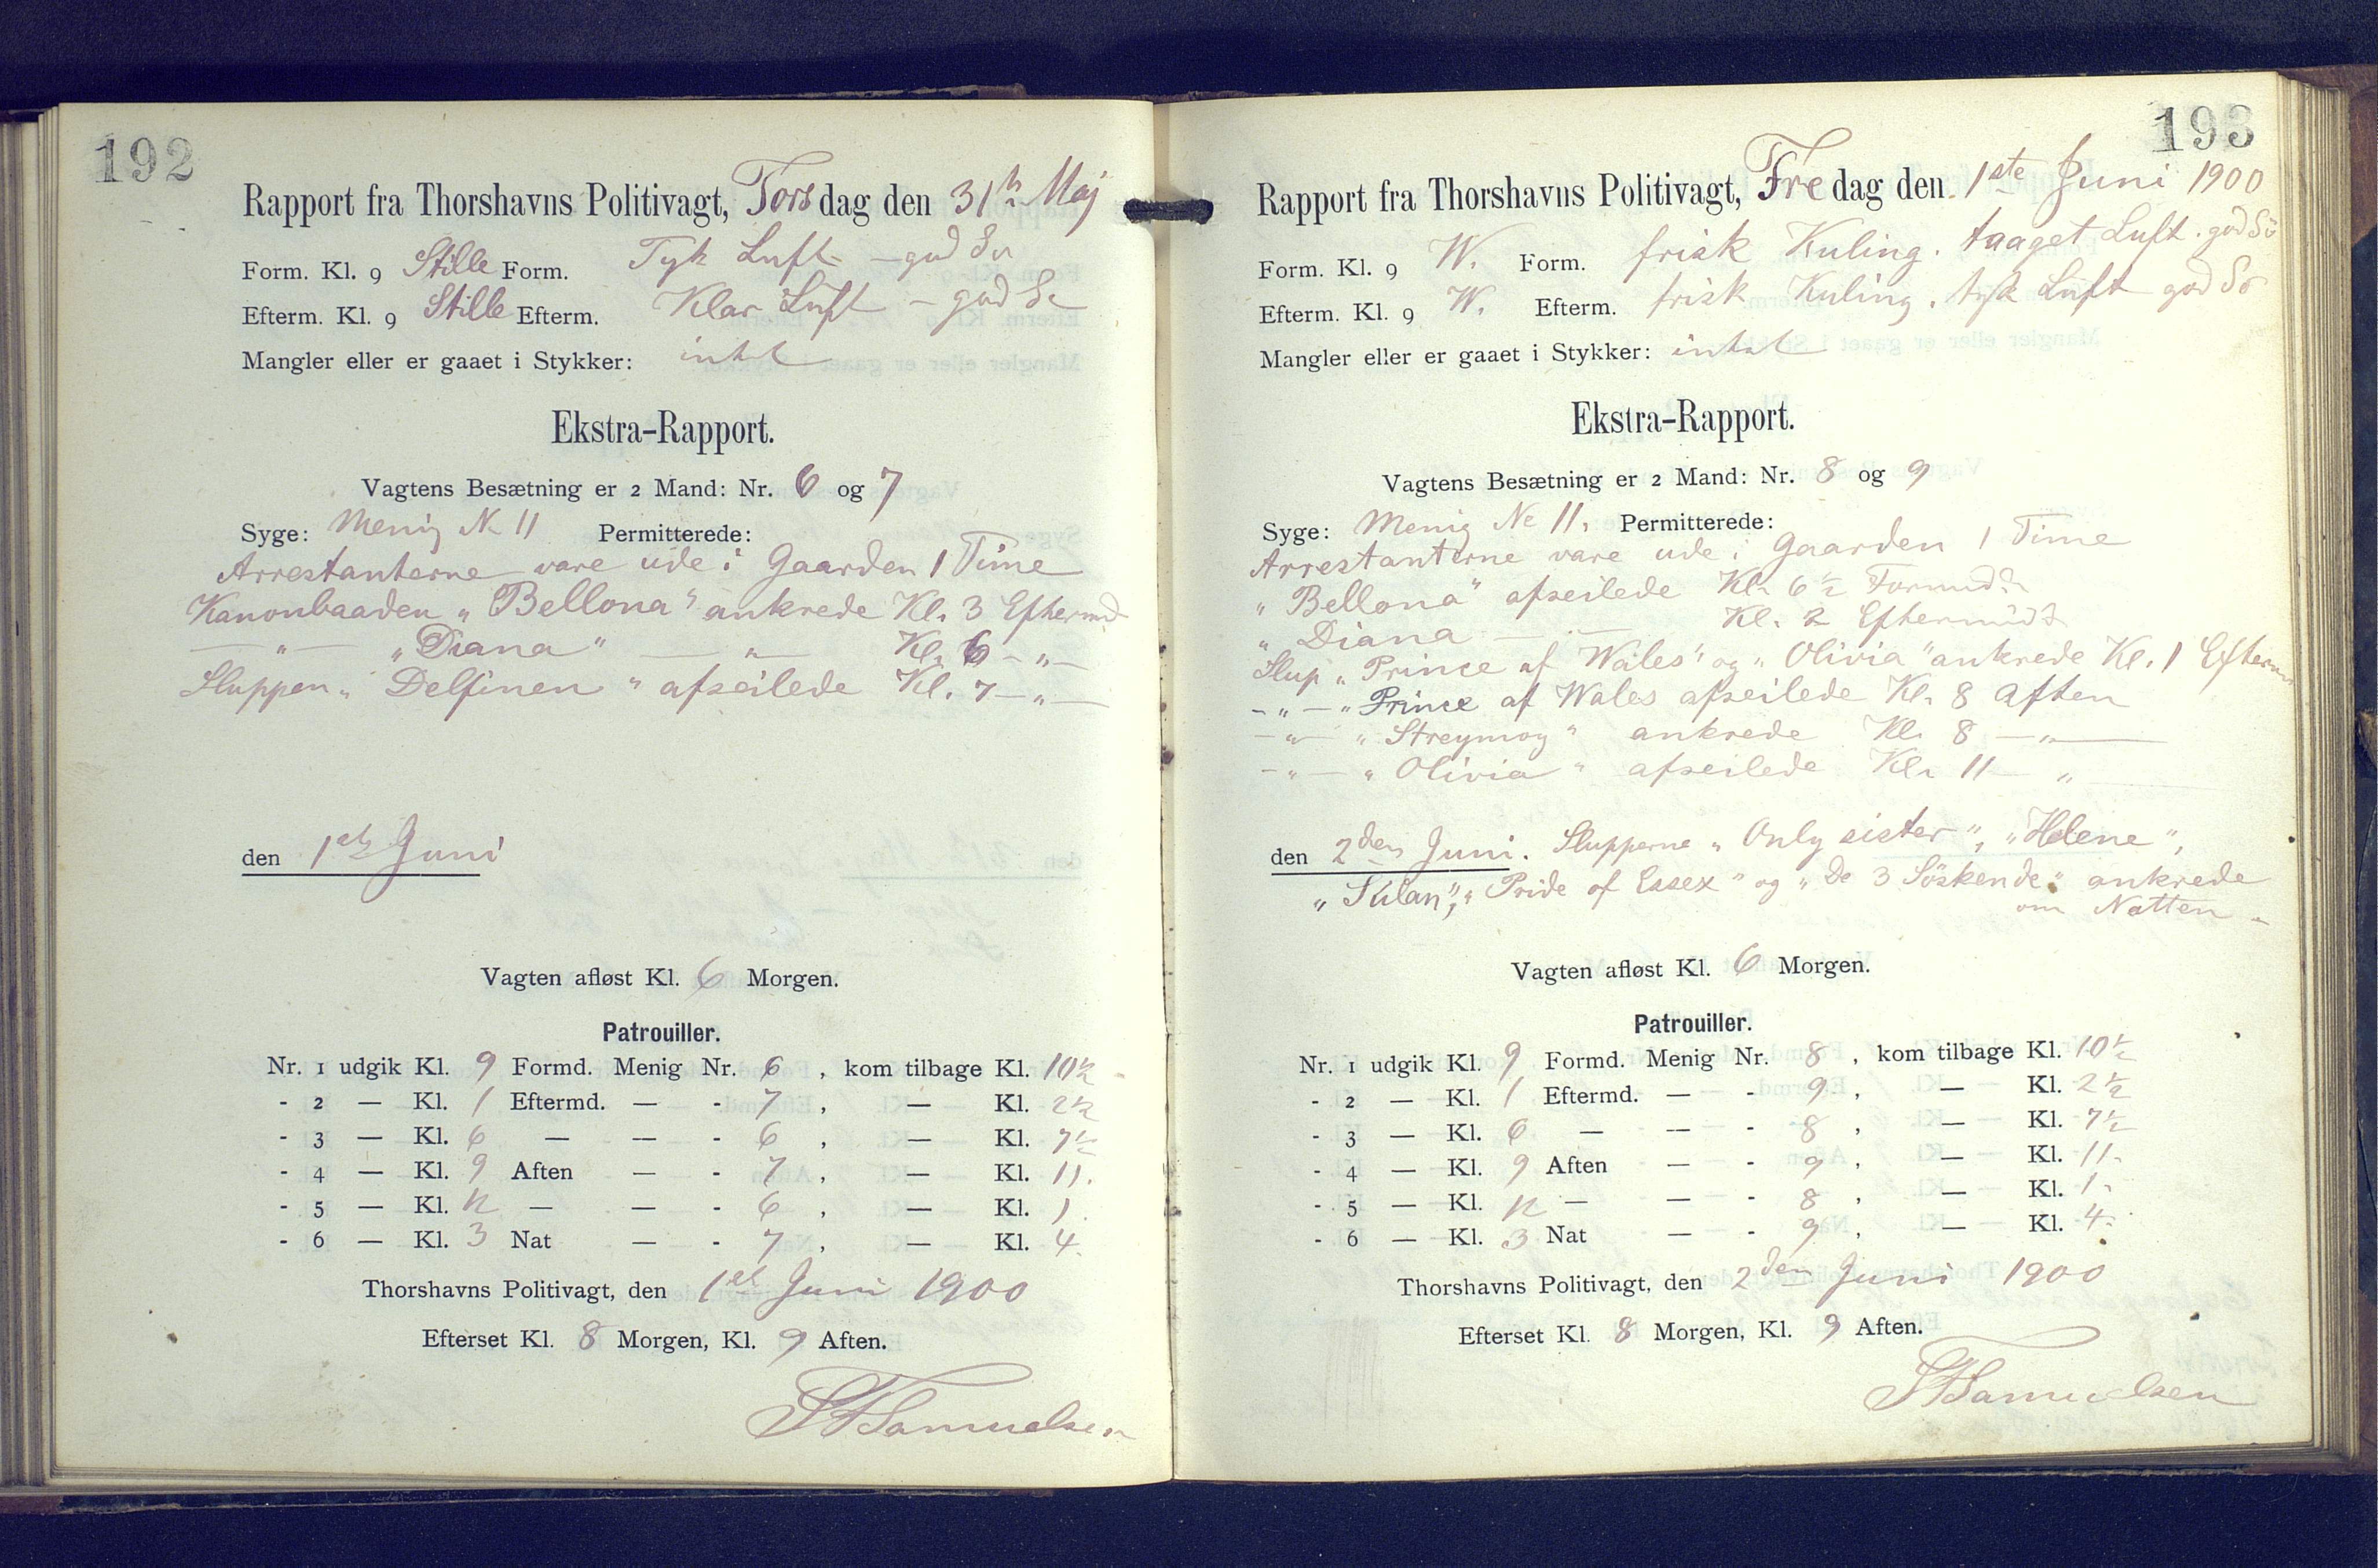 192
Rapport fra Thorshavns Politivagt, Torsdag den 31te Maj
Form. Kl. 9 Stille Form. Tyk Luft - god Sø
Efterm. Kl. 9 Stille Efterm. Klar Luft - god Sø
Mangler eller er gaaet i Stykker: intet
Ekstra-Rapport.
Vagtens Besætning er 2 Mand: Nr. 6 og 7
Syge: Menig No 11 Permitterede:
Arrestanterne vare ude i Gaarden 1 Time
Kanonbaaden „Bellona" ankrede Kl. 3 Eftermd
— " — „Diana" — " — Kl. 6 - " -
Sluppen „Delfinen" afseilede Kl. 7 - " -
den 1ste Juni
Vagten afløst Kl. 6 Morgen.
Patrouiller.
Nr. 1 udgik Kl. 9 Formd. Menig Nr. 6, kom tilbage Kl. 10½
- 2 — Kl. 1 Eftermd. — - 7, — Kl. 2½
- 3 — Kl. 6 — — - 6, — Kl. 7½
- 4 — Kl. 9 Aften — - 7, — Kl. 11.
- 5 — Kl. 12 — — - 6, — Kl. 1
- 6 — Kl. 3 Nat — - 7, — Kl. 4.
Thorshavns Politivagt, den 1ste Juni 1900
Efterset Kl. 8 Morgen, Kl. 9 Aften.
Samuelsen
193
Rapport fra Thorshavns Politivagt, Fredag den 1ste Juni 1900
Form. Kl. 9 W. Form. frisk Kuling. taaget Luft. god Sö
Efterm. Kl. 9 W. Efterm. frisk Kuling. tyk Luft god Sö
Mangler eller er gaaet i Stykker: intet
Ekstra-Rapport.
Vagtens Besætning er 2 Mand: Nr. 8 og 9
Syge: Menig No 11. Permitterede:
Arrestanterne vare ude i Gaarden 1 Time
„Bellona" afseilede Kl. 6½ Formidt
„Diana — " — Kl. 2 Eftermidt
Slup „Prince af Wales" og „Olivia" ankrede Kl. 1 Efterm
- " - „Prince af Wales afseilede Kl. 8 Aften
- " - „Streymoy" ankrede Kl. 8 — " —
- " - „Olivia" afseilede Kl. 11 — "
den 2den Juni. Slupperne „Only sister", „Helene",
„Sulan", „Pride of Essex" og „De 3 Söskende" ankrede
om Natten
Vagten afløst Kl. 6 Morgen.
Patrouiller.
Nr. 1 udgik Kl. 9 Formd. Menig Nr. 8, kom tilbage Kl. 10½
- 2 — Kl. 1 Eftermd. — - 9, — Kl. 2½
- 3 — Kl. 6 — — - 8, — Kl. 7½
- 4 — Kl. 9 Aften — - 9, — Kl. 11-
- 5 — Kl. 12 — — - 8, — Kl. 1-
- 6 — Kl. 3 Nat — - 9, — Kl. 4-
Thorshavns Politivagt, den 2den Juni 1900
Efterset Kl. 8 Morgen, Kl. 9 Aften.
Samuelsen